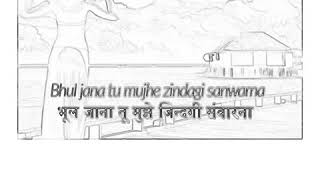 Bhul jana tu mujhe zindagi sanwarna
भूल जाना तू मुझे जिन्दगी संवारना